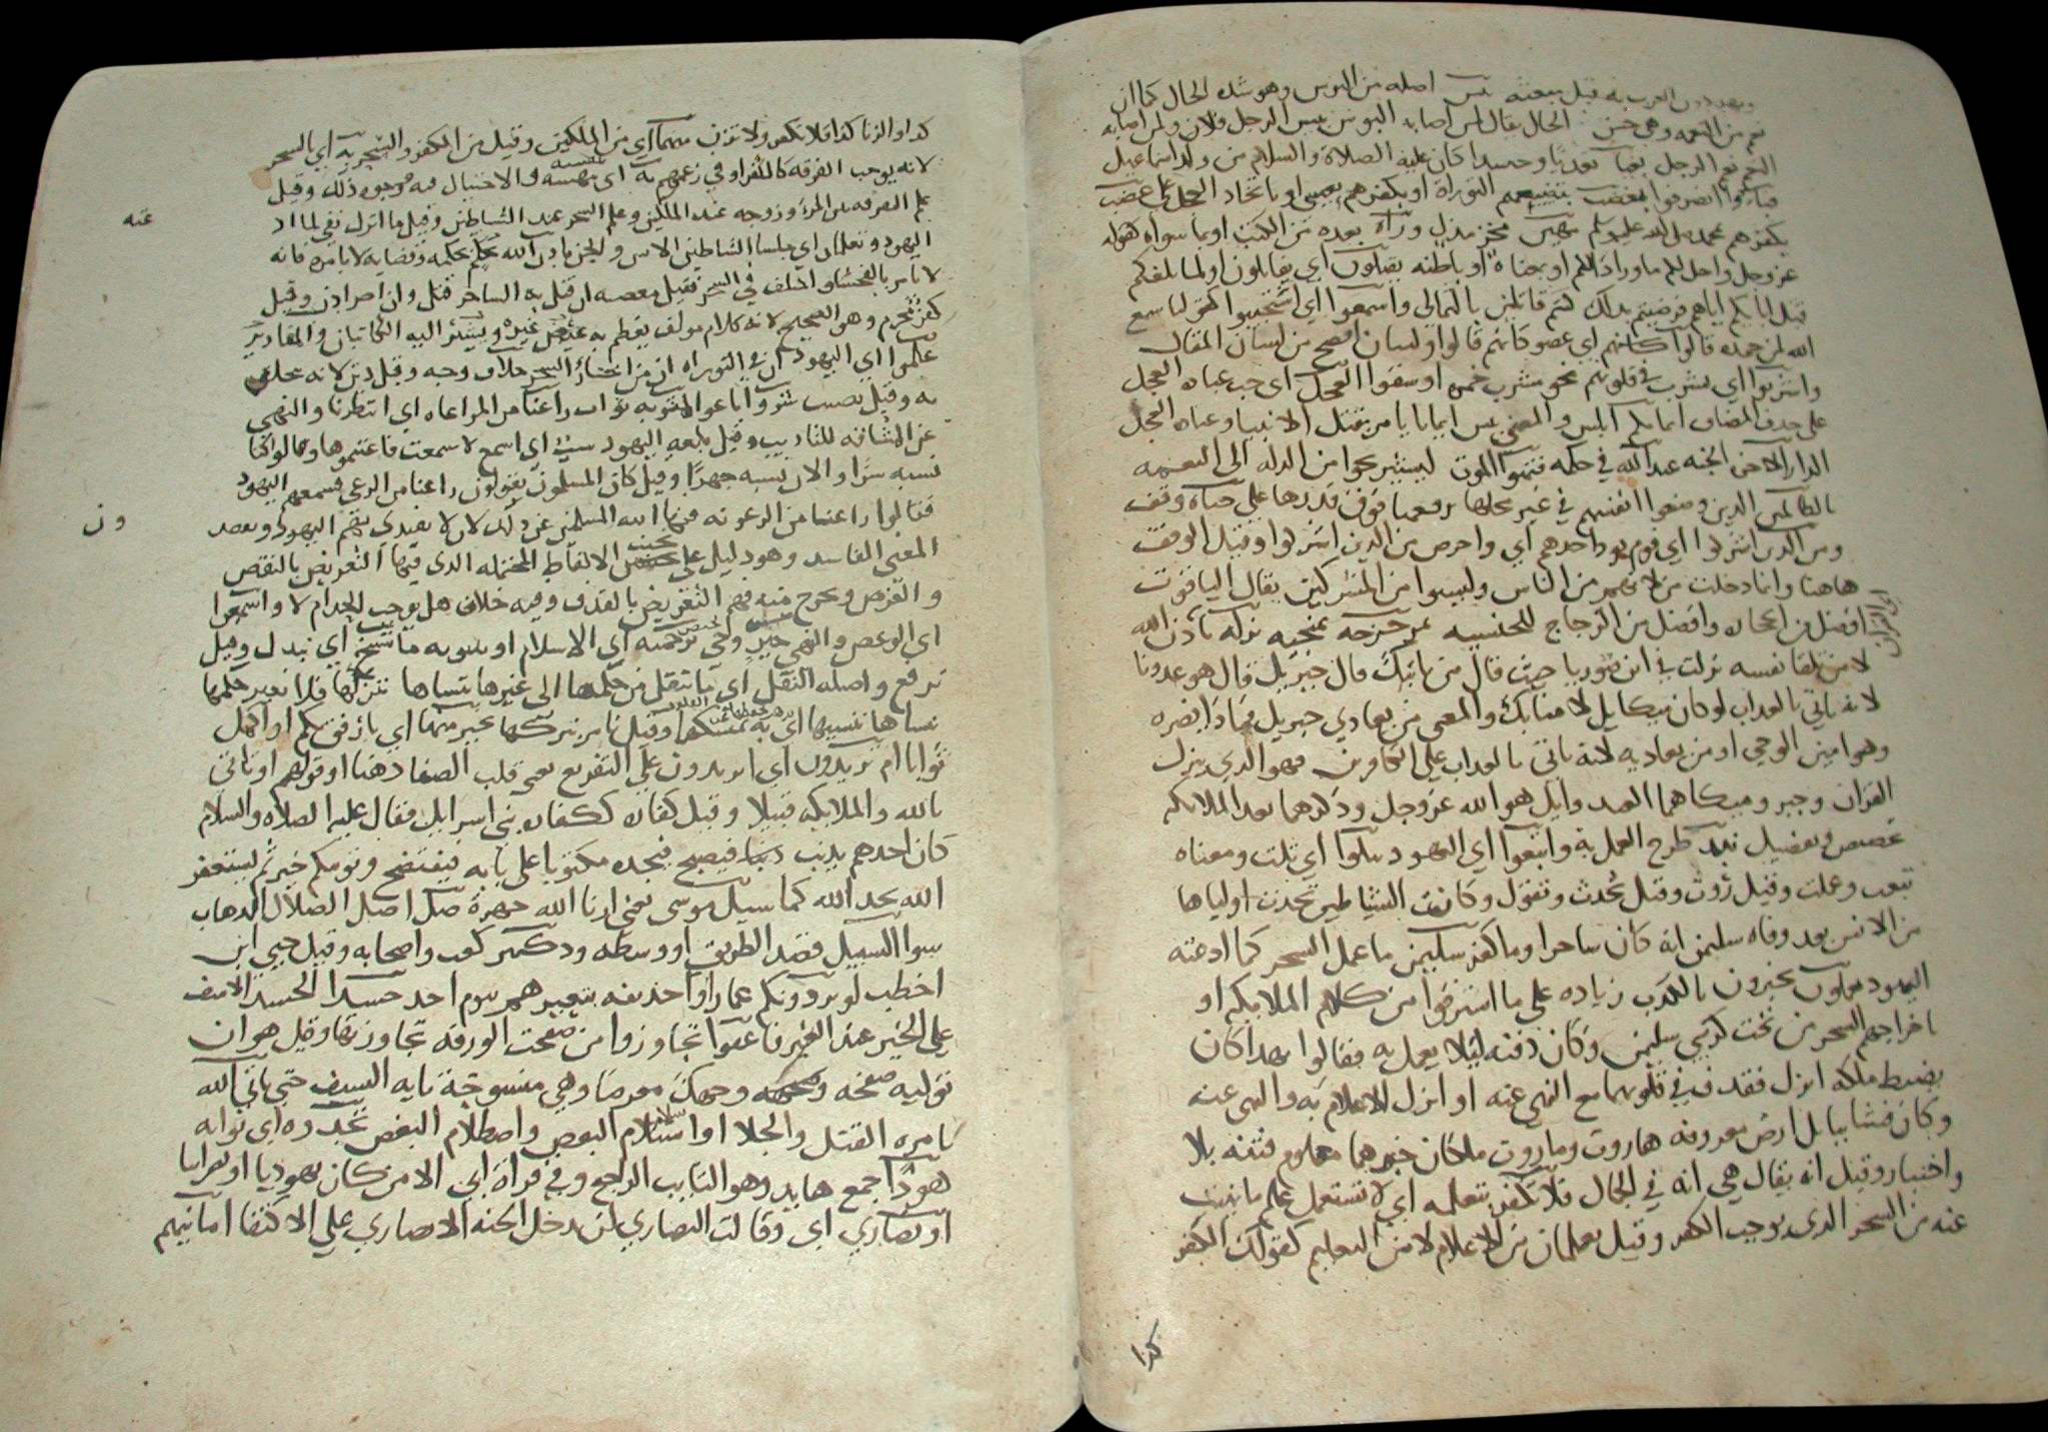 ويهددون العرب به قبل بعثته بئس اصله من البوس وهو شده الحال كما ان
نعم من النعمه وهي حسن الحال يقال لمن اصابه البوس بيس الرجل فلان ولمن اصابه
النعم نعم الرجل بغيا تعديا وحسدا كان عليه الصلاة والسلام من ولد اسماعيل
فباؤا انصرفوا بغضب بتضييعهم التوراة او بكفرهم بعيسى او باتخاد العجل على غضب
بكفرهم بمحمد صلى الله عليه وسلم مهين مخز مذل وراه بعده من الكتب او بما سواه كقوله
عز وجل واحل لكم ماورا ذالكم او بمعناه او باطنه يقتلون اي يقاتلون او لما سلفكم
قتل ابايكم اياهم فرضيتم بذلك كنتم قاتلين بالتمالي واسمعوا اي استجيبوا كقولنا سمع
الله لمن حمده قالوا كانهم اي عصو كانهم قالوا ولسان افصح من لسان المقال
واشربوا اي بشرب في قلوبهم نحو مشرب خمره او سقوا العجل اي حب عباده العجل
على حدف المضاف ايمانكم البس والمعنى بيس ايمانا يامر بقتل الانبيا وعباده العجل
الدار الاخره الجنه عند الله في حكمه فتمنوا الموت ليستريحوا من الدله الى النعيم
بالظالمين الدين وضعوا انفسهم في غير محلها برفعها فوق قدرها على حياة وقف
ومن الدين اشركوا اي قوم يود احدهم اي واحرص من الدين اشركوا وقيل الوقف
هاهنا وانما دخلت من لانهم من الناس وليسوا من المشركين يقال الياقوت
افضل من الحجاره وافضل من الزجاج للجنسيه بمزحزحه بمنجيه نزله باذن الله
لا من تلقا نفسه نزلت في ابن صوريا حيث قال من ياتيك قال جبريل قال هو عدونا
لانه ياتي بالعداب لو كان ميكايل لامنا بك والمعنى من يعادي جبريل فماذا يضره
وهو امين الوحي او من يعاديه لانه ياتي بالعداب على الكافرين فهو الذي ينزل
القران وجبر وميكا هما العبد وايل هو الله عز وجل ودكرهما بعد الملايكه
تخصيص وتفضيل نبد طرح العمل به واتبعوا اي اليهود تتلوا اي تلت ومعناه
تتبعت وعملت وقيل روت وقيل تحدث وتقول وكانت الشياطين تحدث اولياها
من الانس بعد وفاه سليمن انه كان ساحرا وما كفر سليمن ما عمل السحر كما ادعته
اليهود يعلمون يخبرون بالكدب زياده على ما استرقوا من كلام الملايكه او
باخراجهم السحر من تحت كرسي سليمن وكان دفنه ليلا يعمل به فقالوا بهدا كان
يضبط ملكه انزل فقدف في قلوبهما مع النهي عنه او انزل الاعلام به والنهي عنه
وكان فتنتا ببابل ارض معروفه هاروت وماروت ملكان خبرهما معلوم فتنه بلا
واختبار وقيل انه يقال هي انه في الحال فلا تكفر بتعلمه اي لا تستعمل علم ما نهيت
عنه من السحر الذي يوجب الكفر وقيل يعلمان من الاعلام لا من التعليم كقولك الكفر
كذا
كدا والزنا كذا فلا تكفر ولا تزن منهما اي من الملكين وقيل من الكفر والسحر به اي بالسحر
لانه يوجب الفرقه كالكفر او في زعمهم به اي بنفسه والاحتيال فيه موجود ذلك وقيل
علم الفرقه بين المرء وزوجه عند الملكين وعلم السحر عند الشياطين وقيل ما انزل نفي لما اد
عته
اليهود وتعلمان اي جلسا الشاطين الانس والجن باذن الله بحكم بحكمه وقضايه لا بامره فانه
لا يامر بالفحشا واختلف في السحر فقيل معصيه ان قتل به الساحر قتل وان اضر ادب وقيل
كفر محرم وهو الصحيح لانه كلام مولف يعظم به غير الله عز وجل وينسب اليه الكاينات والمقادير
علموا اي اليهود ان في التوراه ان من اختار السحر خلاف وجه وقيل دين لانه يحلف
به وقيل نصيب شروا باعوا لمثوبه ثواب راعنا من المراعاه اي انتظرنا والنهي
عن المشافه للتاديب وقيل بلغه اليهود سب اي اسمع لا سمعت فاغتنموها وقالوا كنا
نسبه سرا والان نسبه جهرا وقيل كان المسلمون يقولون راعنا من الرعي فسمعهم اليهود
فقالوا راعنا من الرعونه فنها الله المسلمين عن ذلك لان لا يقتدي بهم اليهود وبعد
ون
المعنى الفاسد وهو دليل على تجنب الالفاظ المحتمله الدى فيها التعريض بالنقص
والغرض ويخرج منه فهم التعريض بالقدف وفيه خلاف هل يوجب الحد ام لا واسمعوا
اي الوعظ والنهي خير وحي برحمته اي الاسلام او بنبوته ما ننسخ اي نبدل وقيل
نرفع واصله النقل اي ما ننقل من حكمها الى غيرها ننساها نتركها فلا نغير حكمها
ننساها ننسيها اي به نمسكها وقيل نامر بتركها بخير منها اي بارفق بكم او اكمل
ثوابا ام تريدون اي اتريدون على التقريع بمعنى قلب الصفا دهبا او قولهم او تاتي
بالله والملايكه قبيلا وقيل كفاره ككفاره بني اسرايل فقال عليه الصلاه والسلام
كان احدهم يدنب دنبا فيصبح فيجده مكتوبا على بابه فيفتضح ونومكم خير ثم يستغفر
الله يجد الله كما سيل موسى يعني ارنا الله جهرة ضل اصل الضلال الدهاب
سوا السبيل قصد الطريق او وسطه ود كثير كعب واصحابه وقيل حيي ابن
اخطب لو يردونكم عمارا او حذيفه بتعييرهم يوم احد حسدا الحسد الاسف
على الخير عند الغير فاعفوا تجاوزوا من صفحت الورقه تجاوزتها وقيل هو ان
توليه صفحه وجهك معرضا وهي منسوخة بايه السيف حتى ياتي الله
بامره القتل والجلا او استسلام البعض واصطلام البعض تجدوه اي ثوابه
هودا جمع هايد وهو التايب الراجع وفي قراة ابي الا من كان يهوديا او نصرانيا
او نصارى اي وقالت النصارى لن يدخل الجنه الا نصاري على الاكتفا امانيهم